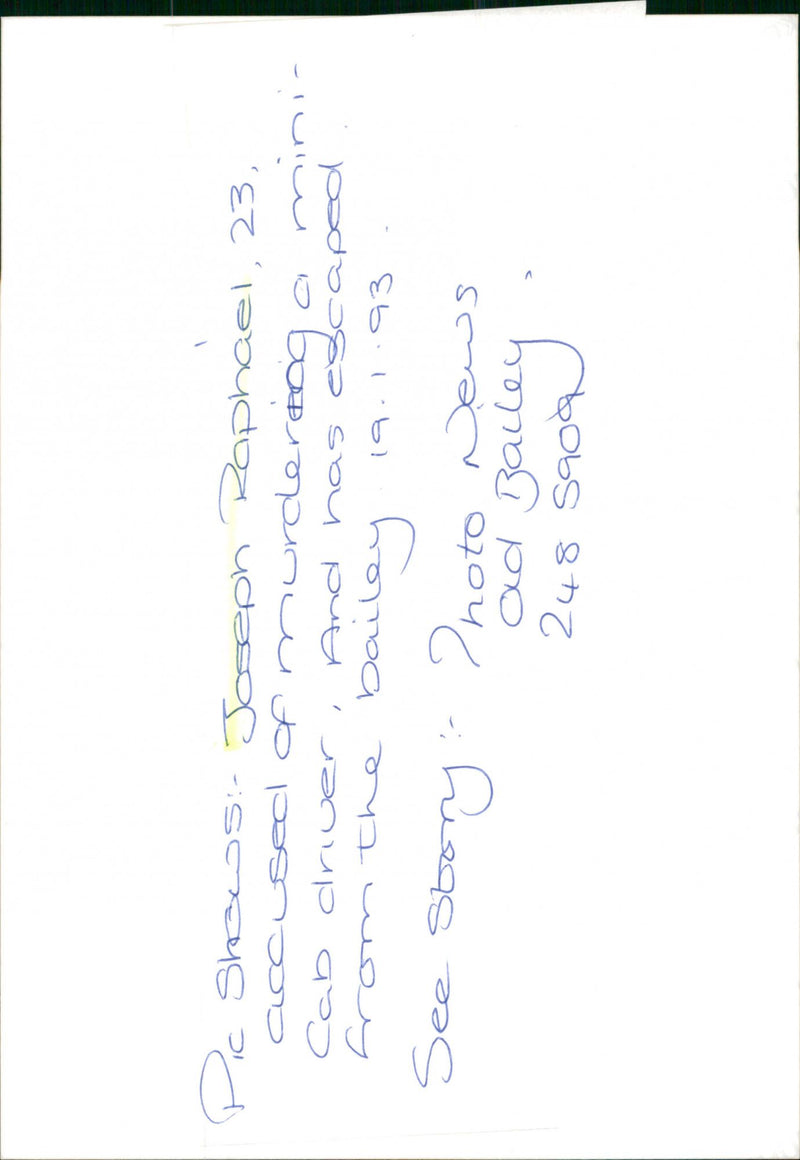 Pic Shows:- Joseph Raphael, 23,
accused of murdering a mini-
Cab driver, And has escaped
from the bailey 19.1.93.
See Story :- Photo News
Old Bailey
248 5909